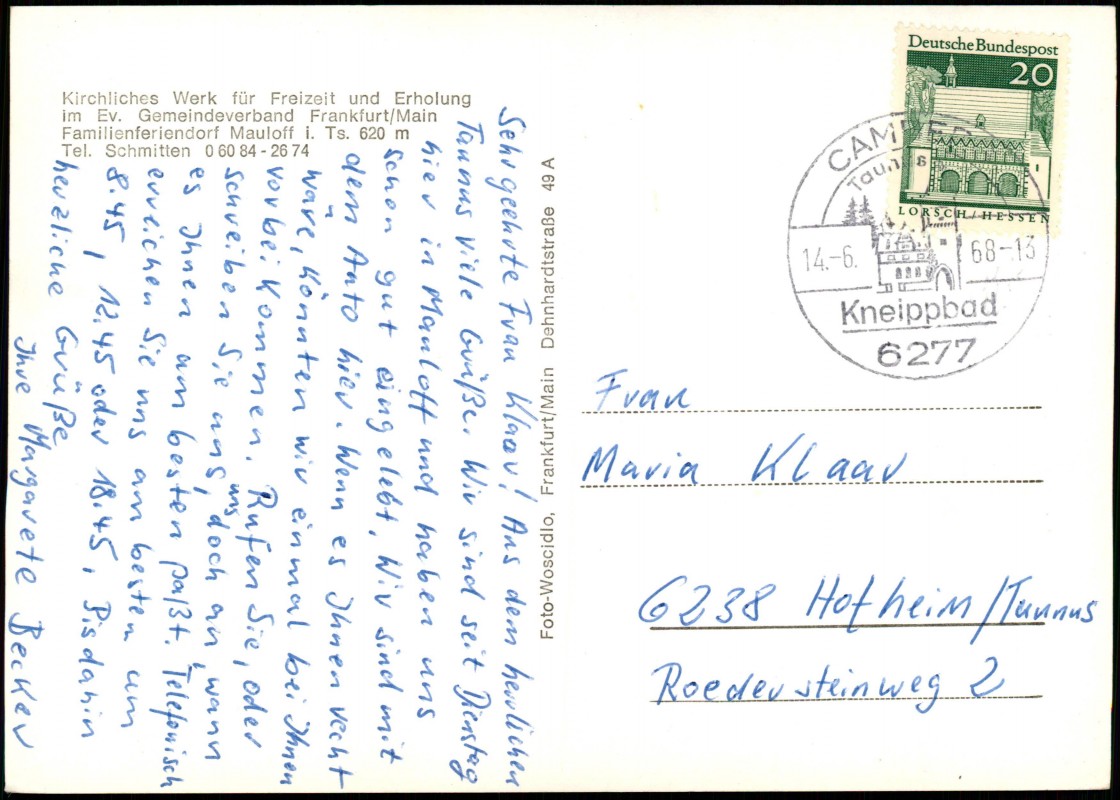 Kirchliches Werk für Freizeit und Erholung
im Ev. Gemeindeverband Frankfurt/Main
Familienferiendorf Mauloff i. Ts. 620 m
Tel. Schmitten 0 60 84 - 26 74
Sehr geehrte Frau Klaar! Aus dem herrlichen
Taunus viele Grüße. Wir sind seit Dienstag
hier in Mauloff und haben uns
schon gut eingelebt. Wir sind mit
dem Auto hier. Wenn es Ihnen recht
wäre, könnten wir einmal bei Ihnen
vorbei kommen. Rufen Sie, oder
schreiben Sie uns, uns doch an, wann
es Ihnen am besten paßt. Telefonisch
erreichen Sie uns am besten um
8.45, 12.45 oder 18.45. Bis dahin
herzliche Grüße
Ihre Margarete Becker
Foto-Woscidlo, Frankfurt/Main Dehnhardtstraße 49 A
Deutsche Bundespost
20
LORSCH/HESSEN
Taunus
14.-6. 68-13
Kneippbad
6277
Frau
Maria Klaar
6238 Hofheim/Taunus
Roedersteinweg 2